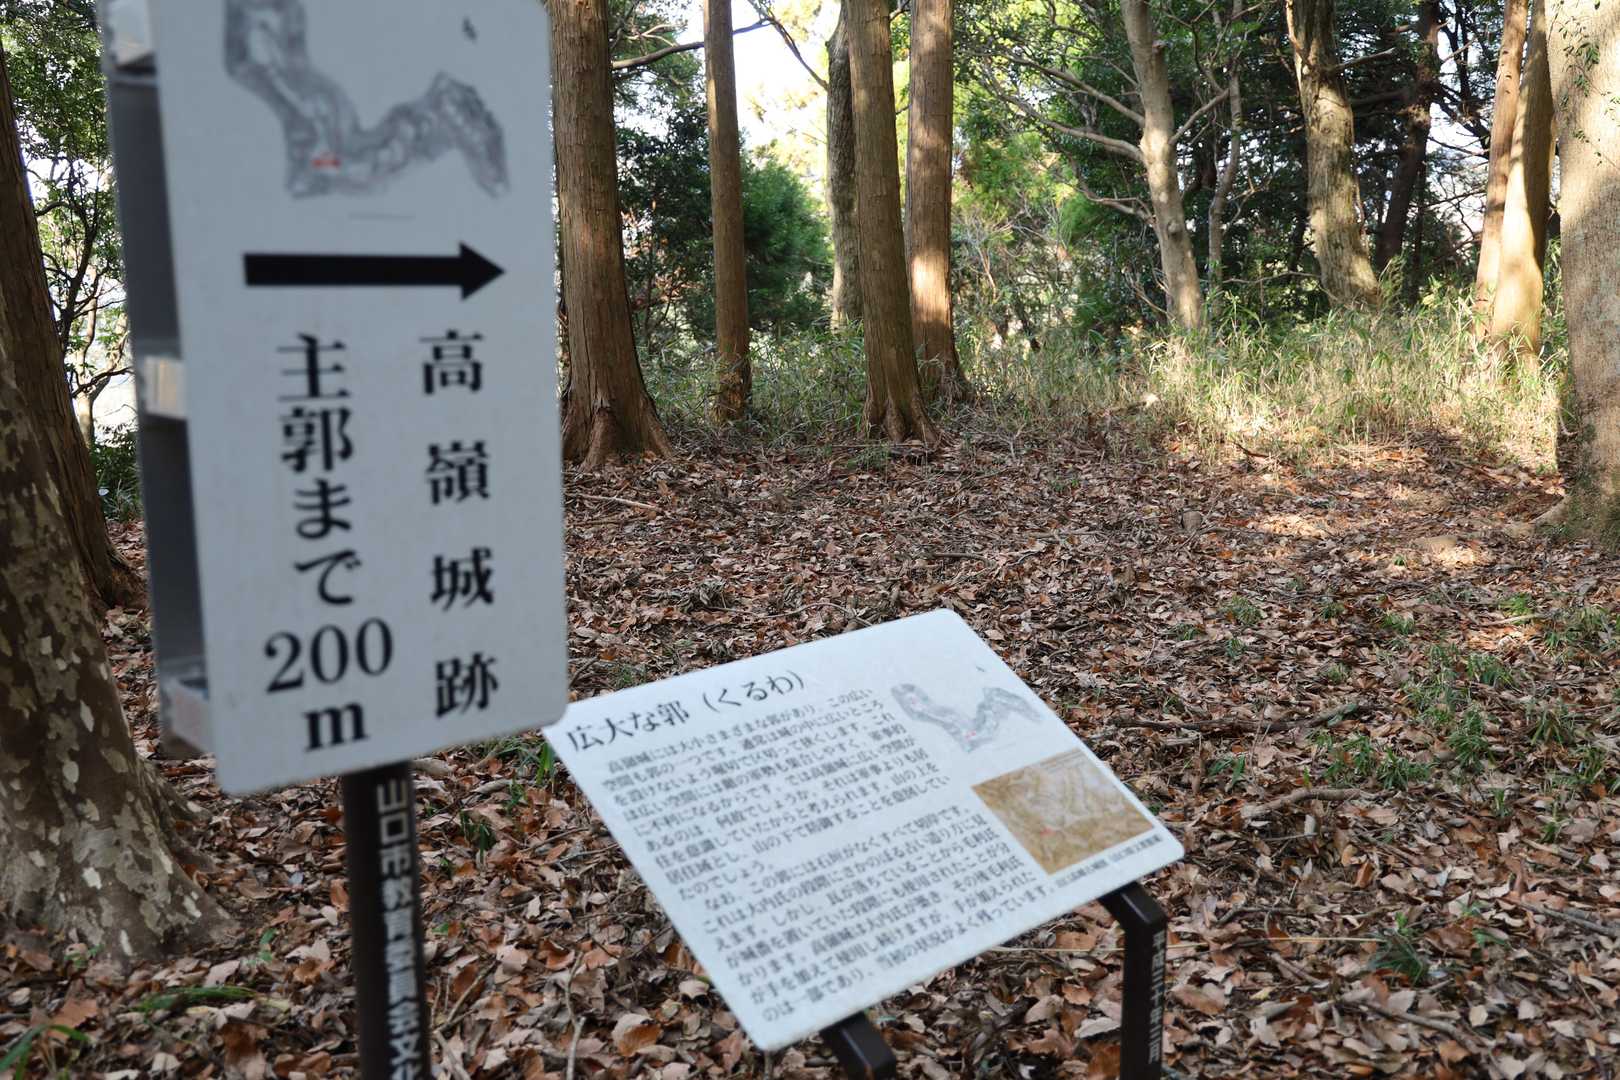 高嶺城跡
主郭まで200m
山口市教育委員会文化
広大な郭（くるわ）
高嶺城には大小さまざまな郭があり、この広い
空間も郭の一つです。通常は城の中に広いところ
を設けないよう堀切で区切って狭くします。これ
は広い空間には敵の軍勢も集合しやすく、軍事的
に不利になるからです。では高嶺城に広い空間が
あるのは、何故でしょうか。それは軍事よりも居
住を意識していたからと考えられます。山の上を
居住域とし、山の下で防御することを意図してい
たのでしょう。
なお、この郭には石垣がなくすべて切岸です。
これは大内氏の段階にさかのぼる古い造り方に見
えます。しかし、瓦が落ちていることから毛利氏
が城番を置いていた段階にも使用されたことが分
かります。高嶺城は大内氏が築き、その後毛利氏
が手を加えて使用し続けますが、手が加えられた
のは一部であり、当初の状況がよく残っています。